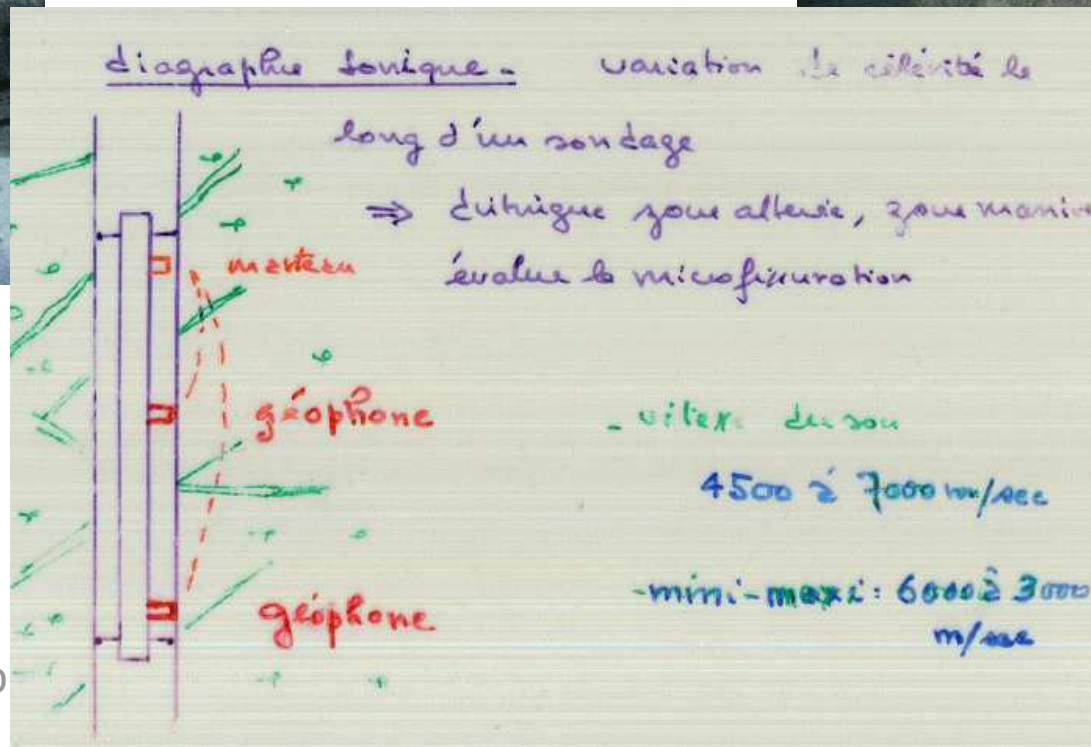 diagraphie sonique - variation de célérité le
long d'un sondage
⇒ zone altérée, zone
évalue la microfissuration
marteau
géophone
- vitesse du son
4500 à 7000 m/sec
géophone
-mini-maxi: 6000 à 3000
m/sec